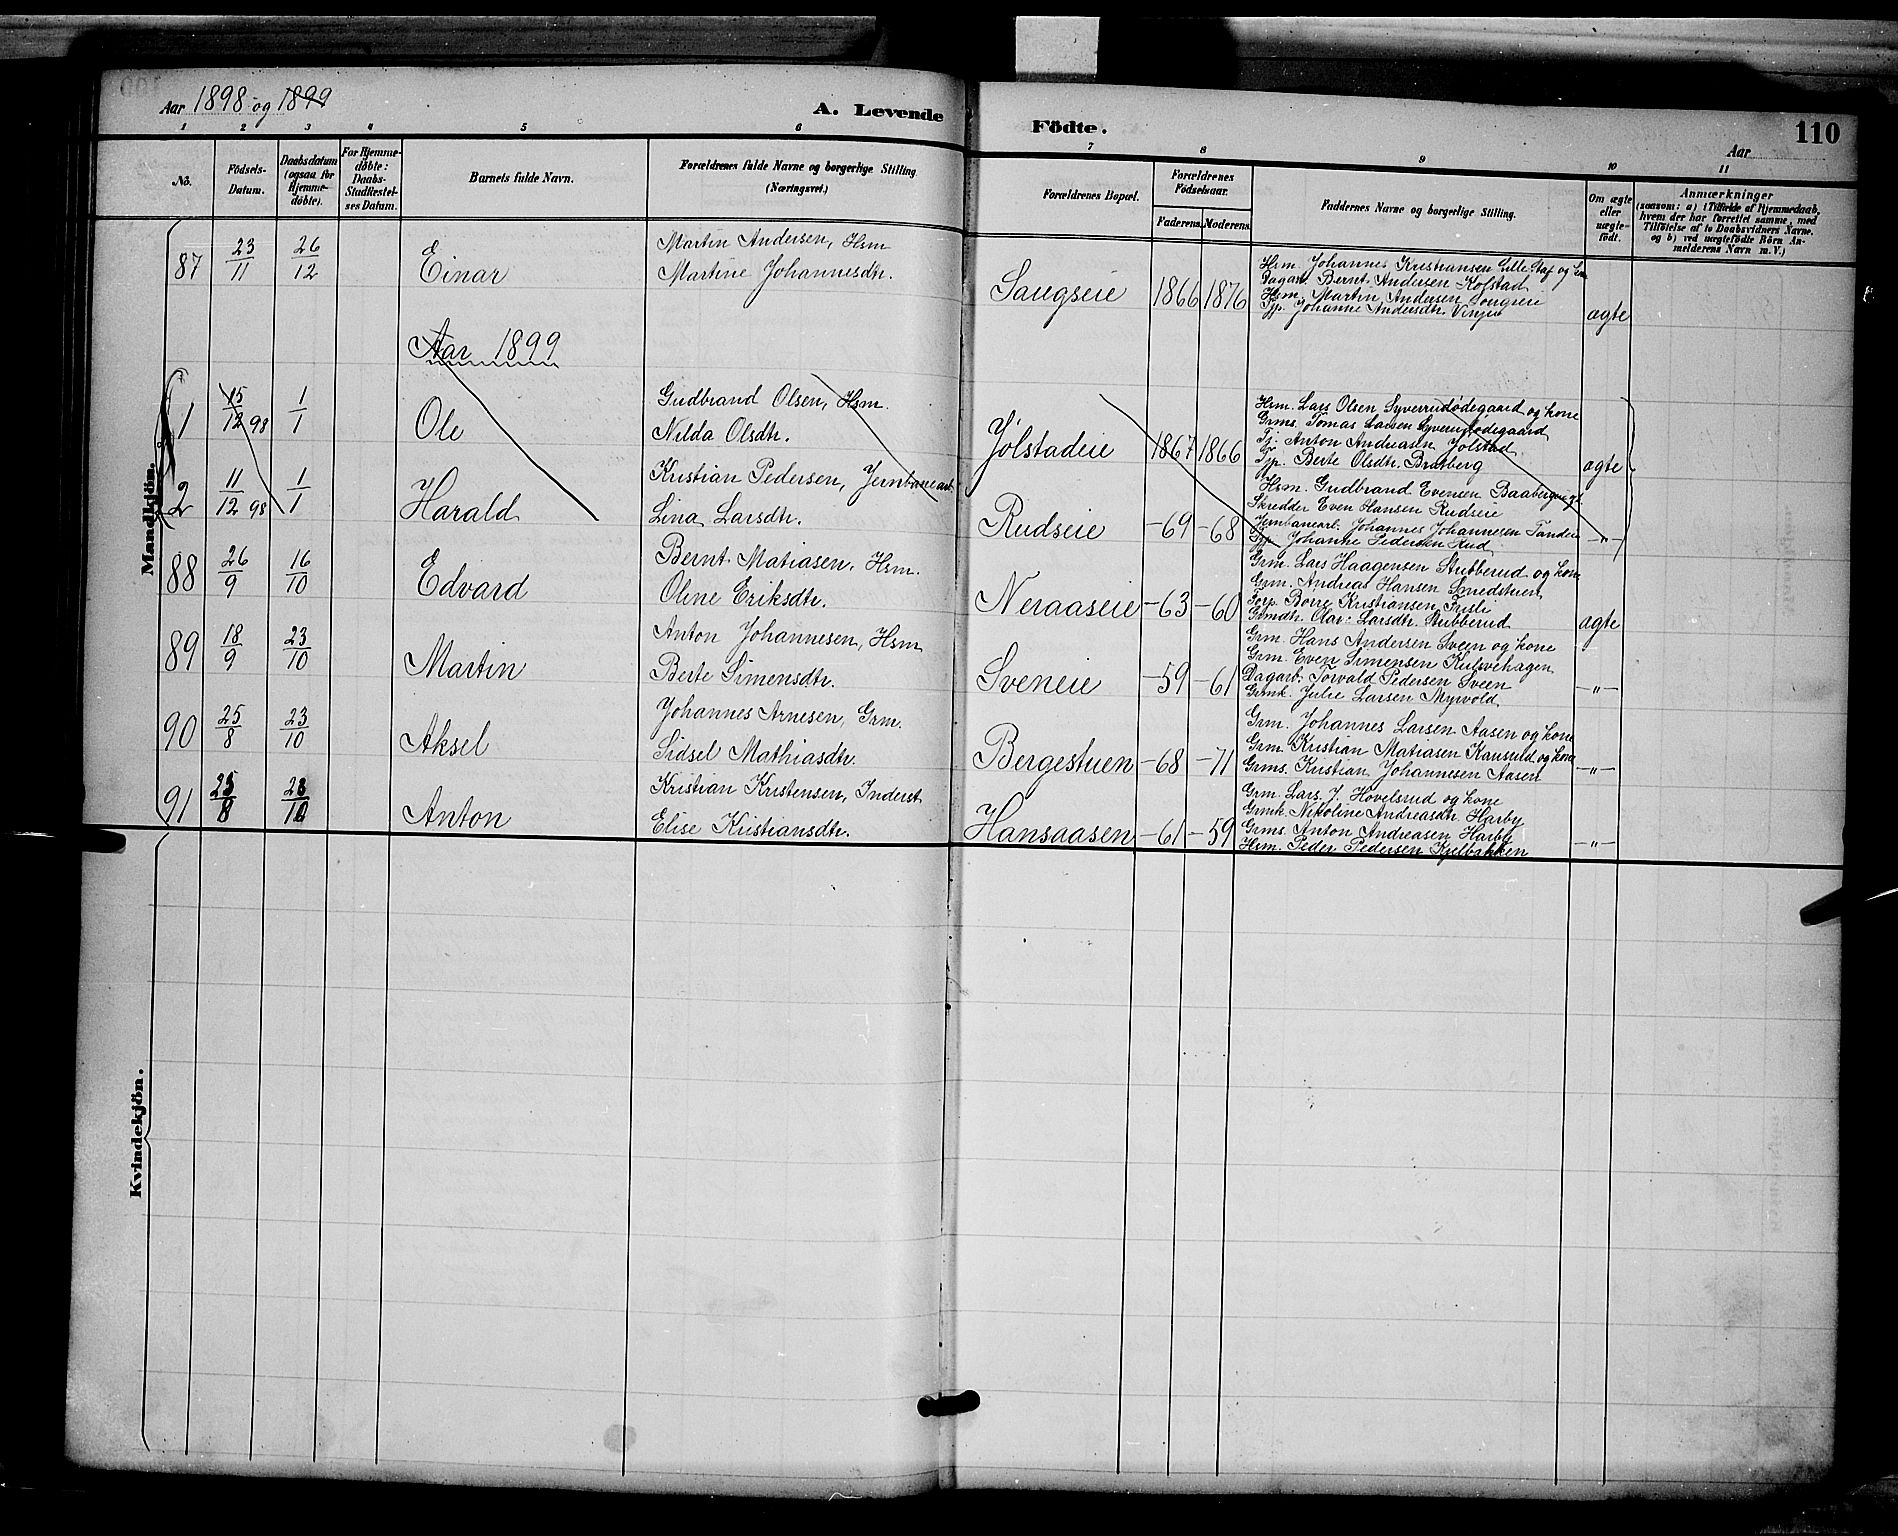 Aar 1898 og 1899
A. Levende Födte.
110
Aar
1 2 3 4 5 6 7 8 9 10 11
No.
Födsels-Datum.
Daabsdatum (ogsaa for Hjemme-döbte).
For Hjemme-döbte: Daabs-Stadfæstel-ses Datum.
Barnets fulde Navn.
Forældrenes fulde Navne og borgerlige Stilling (Næringsvei.)
Forældrenes Bopæl.
Forældrenes Födselsaar.
Faderens. Moderens.
Faddernes Navne og borgerlige Stilling.
Om ægte eller uægte-födt.
Anmærkninger
(saasom: a) i Tilfælde af Hjemmedaab,
hvem der har forrettet samme, med
Tilföielse af to Daabsvidners Navne.
og b) ved uægtefödte Börn An-
melderens Navn m. V.)
Mandkjön.
87 23/11 26/12 Einar
Martin Andersen, Hsm
Martine Johannesdtr.
Saugseie 1866 1876
Hsm. Johannes Kristiansen Lille
Dagarb. Bernt Andersen Kofstad
Hsm. Martin Andersen Saugseie
Tjp. Johanne Andersdtr.
ægte
Aar 1899
1 15/12 98 1/1 Ole
Gudbrand Olsen, Hsm.
Nilda Olsdtr.
Jølstadeie 1867 1866
Hsm. Lars Olsen Syverrudødegaard og kone
Grms. Tomas Larsen Syverrudødegaard
Tj. Anton Andreasen Jølstad
Tjp. Berte Olsdtr. Bratberg
ægte
2 11/12 98 1/1 Harald
Kristian Pedersen, Jernbanearb.
Lina Larsdtr.
Rudseie -69 -68
Hsm. Gudbrand Evensen
Skredder Even Hansen Rudseie
Jernbanearb. Johannes Johannesen
Tjp. Johanne Pedersen Rud
-"-
88 26/9 16/10 Edvard
Bernt Matiasen, Hsm.
Oline Eriksdtr.
Neraaseie -63 -60
Grm. Lars Haagensen Stubberud og kone
Grm. Andreas Hansen Smedstuen
Forp. Børre Kristiansen
Grmdtr. Larsdtr. Stubberud
ægte
89 18/9 23/10 Martin
Anton Johannesen, Hsm
Berte Simensdtr.
Sveneie -59 -61
Grm. Hans Andersen Sveen og kone
Grm. Even Simensen
Dagarb. Torvald Pedersen Sveen
Grmk. Julie Larsen Myrvold
-"-
90 25/8 23/10 Aksel
Johannes Arnesen, Grm.
Sidsel Mathiasdtr.
Bergestuen -68 -71
Grm. Johannes Larsen Aasen og kone
Grm. Kristian Matiasen Kausrud og kone
Grms. Kristian Johannesen Aasen
-"-
91 25/8 Anton
Kristian Kristensen, Inderst
Elise Kristiansdtr.
Hansaasen -61 -59
Grm. Lars J. Hovelsrud og kone
Grmk. Nikoline Andreasdtr. Harby
Grms. Anton Andreasen Harby
Hsm. Peder Pedersen
-"-
Kvindekjön.